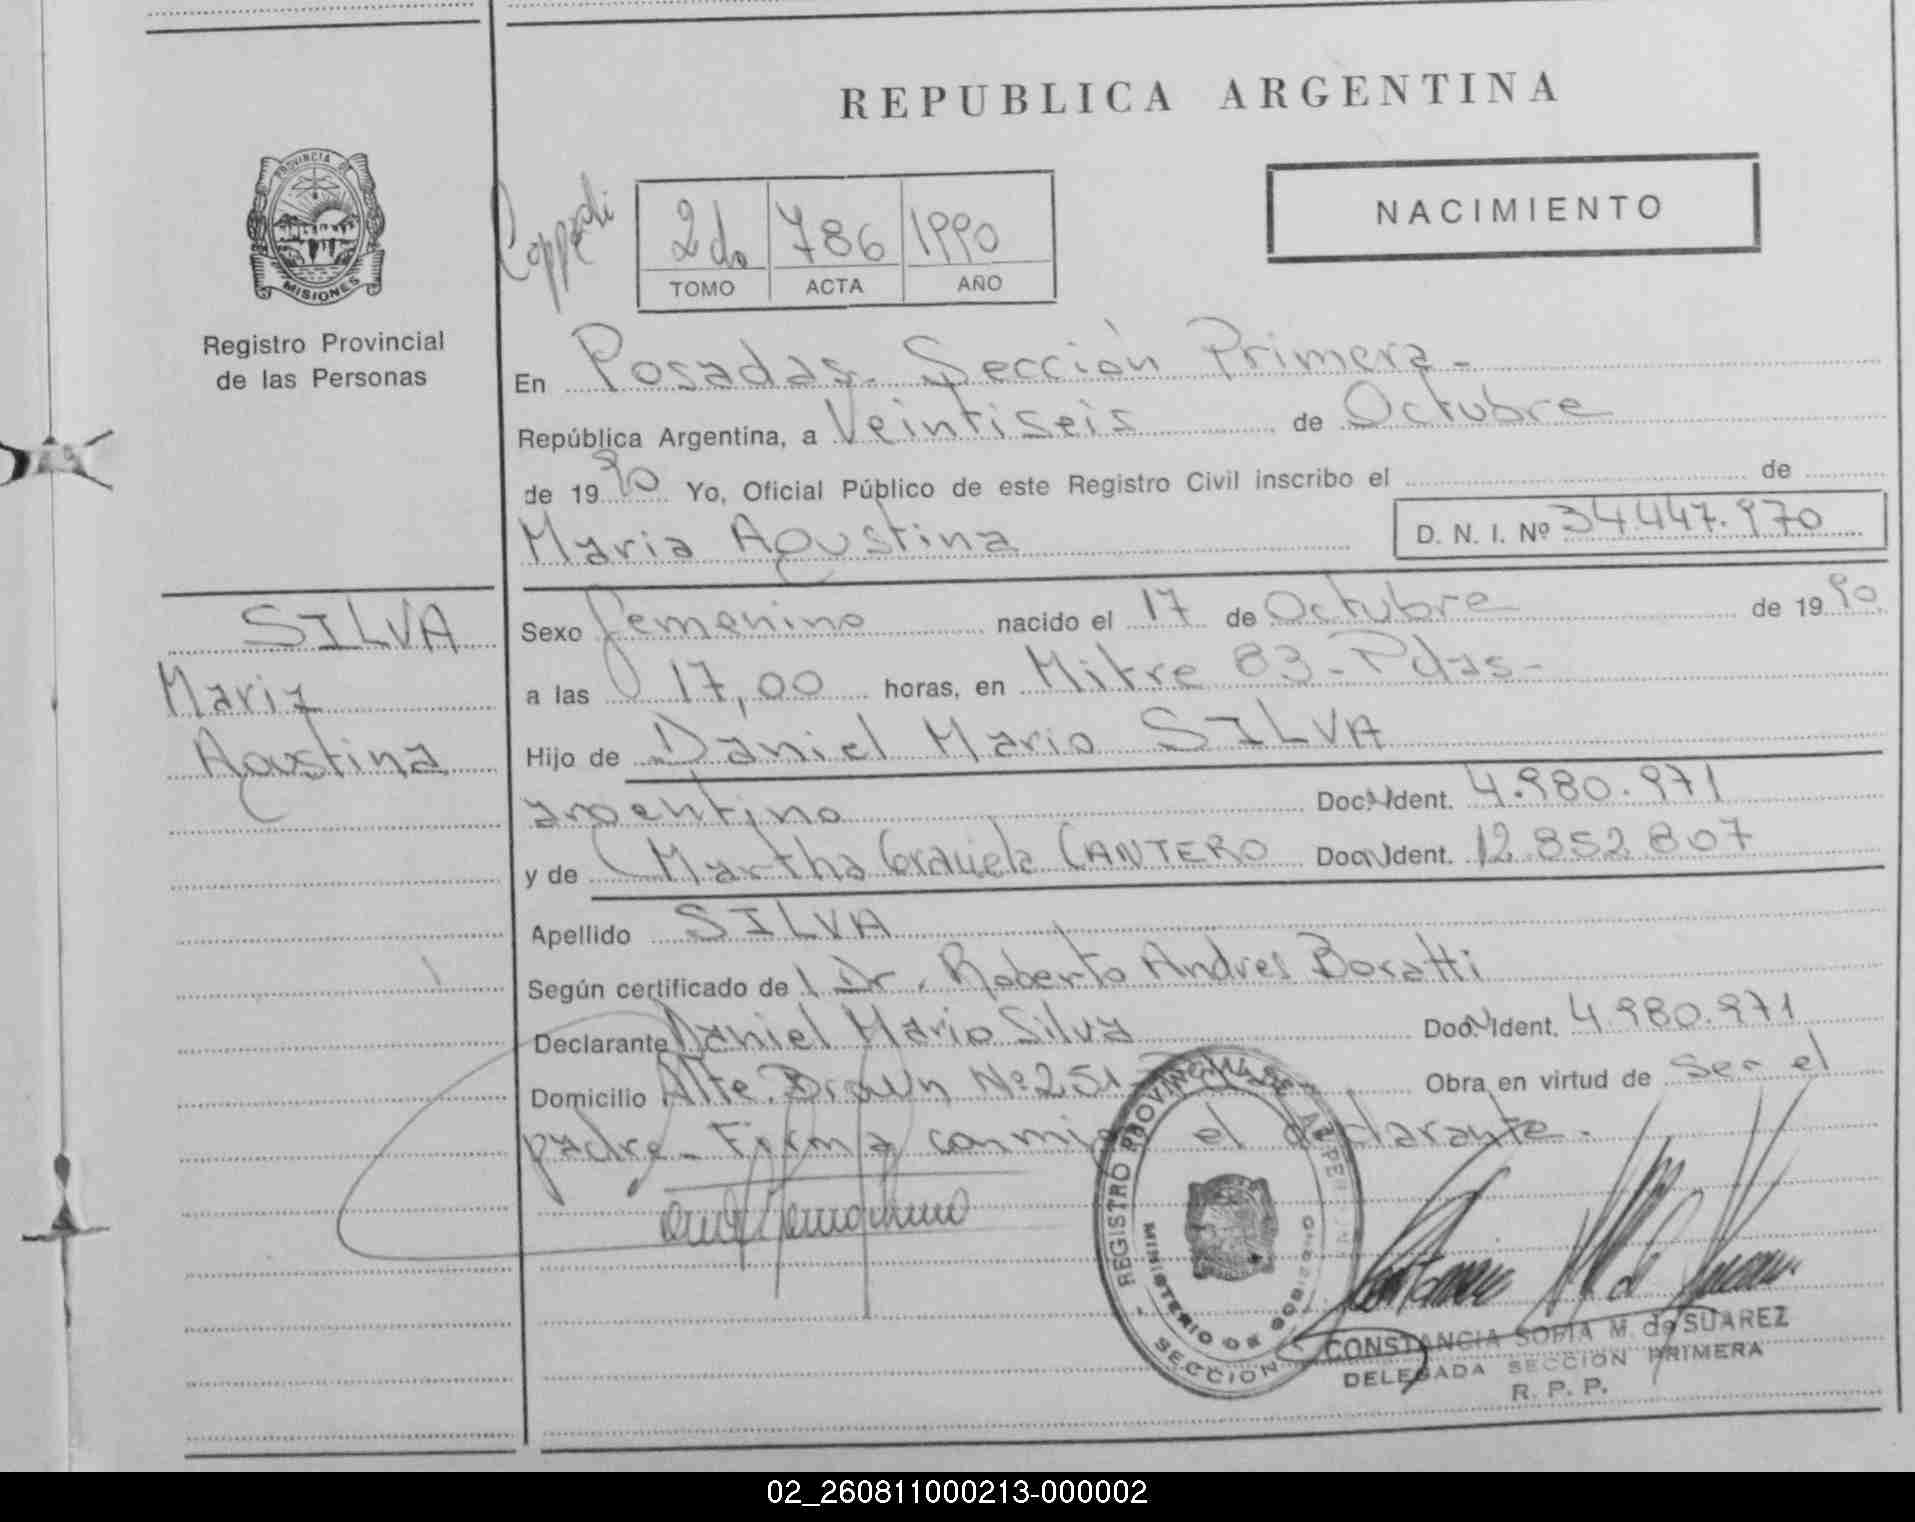 REPUBLICA ARGENTINA
PROVINCIA DE
MISIONES
Registro Provincial
de las Personas
NACIMIENTO
2do 786 1990
TOMO ACTA AÑO
En Posadas. Sección Primera -
República Argentina, a Veintiseis de Octubre
de 1990 Yo, Oficial Público de este Registro Civil inscribo el de
Maria Agustina D. N. I. Nº 34.447.970
SILVA
Maria
Agustina
Sexo Femenino nacido el 17 de Octubre de 1990
a las 17,00 horas, en Mitre 83 - Pdas -
Hijo de Daniel Mario SILVA
argentino Doc. Ident. 4.980.971
y de Martha Graciela CANTERO Doc. Ident. 12.852.807
Apellido SILVA
Según certificado de Dr. Roberto Andres Boratti
Declarante Daniel Mario Silva Doc. Ident. 4.980.971
Domicilio Alte. Brown Nº 251 Obra en virtud de ser el
padre - Firma conmigo el declarante -
REGISTRO PROVINCIAL DE
MINISTERIO DE GOBIERNO
SECCION
CONSTANCIA SOFIA M. de SUAREZ
DELEGADA SECCION PRIMERA
R. P. P.
02_260811000213-000002